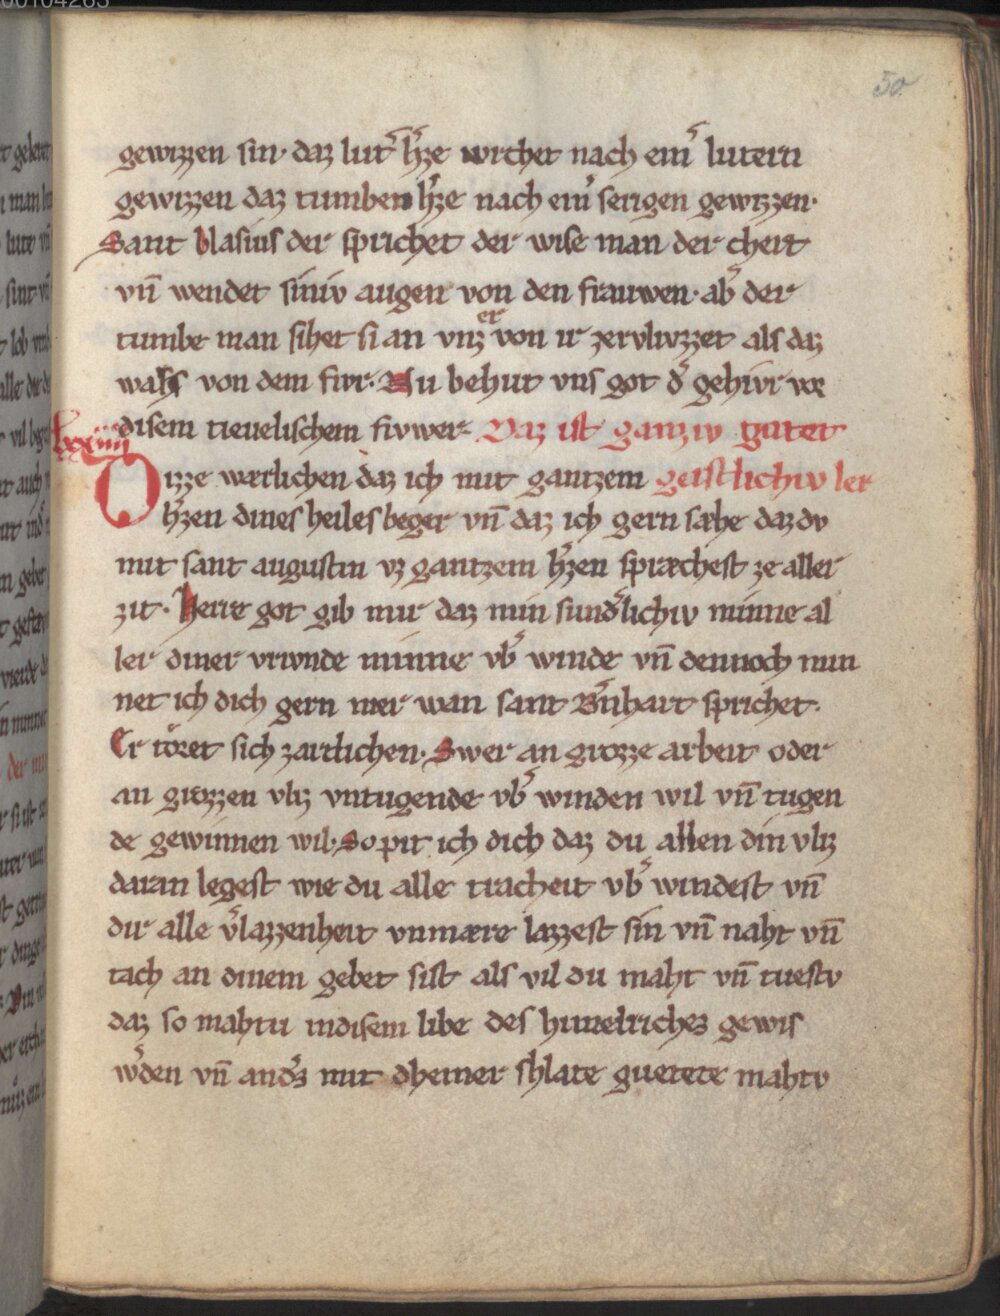 50
gewizzen sin· daz lutˀ hˀze wrchet nach eimˀ lutern
gewizzen daz tumben hˀze nach eimˀ serigen gewizzen·
Sant blasius der sprichet der wise man der chert
vn̄ wendet siniv augen von den frauwen· abˀ der
tumbe man sihet si an vnz er von ir zervliuzzet als daz
wahs von dem fivr· Nu behut vns got dˀ gehivr vor
disem tievelischem fivwer· Daz ist ganziv guter
lxxiiii
Wizze wærlichen daz ich mit gantzem geistlichiv ler
hˀzen dines heiles beger vn̄ daz ich gern sæhe daz dv
mit sant augustin vz gantzem hˀzen spræchest ze aller
zit· Herre got gib mir daz min sundˀlichiv minne al
ler diner vrivnde minne vbˀ winde vn̄ dennoch min
net ich dich gern mer wan sant Bˀnhart sprichet·
Er tőret sich zartlichen· Swer an grozze arbeit oder
an grozzen vliz vntugende vbˀ winden wil vn̄ tugen
de gewinnen wil· So pit ich dich daz du allen din vliz
daran legest wie du alle tracheit vbˀ windest vn̄
dir alle vˀlazzenheit vnmære lazzest sin vn̄ naht vn̄
tach an dinem gebet sist als vil du maht vn̄ tuestv
daz so mahtu indisem libe des himelriches gewis
wˀden vn̄ andˀs mit dheiner shlate guetete mahtv